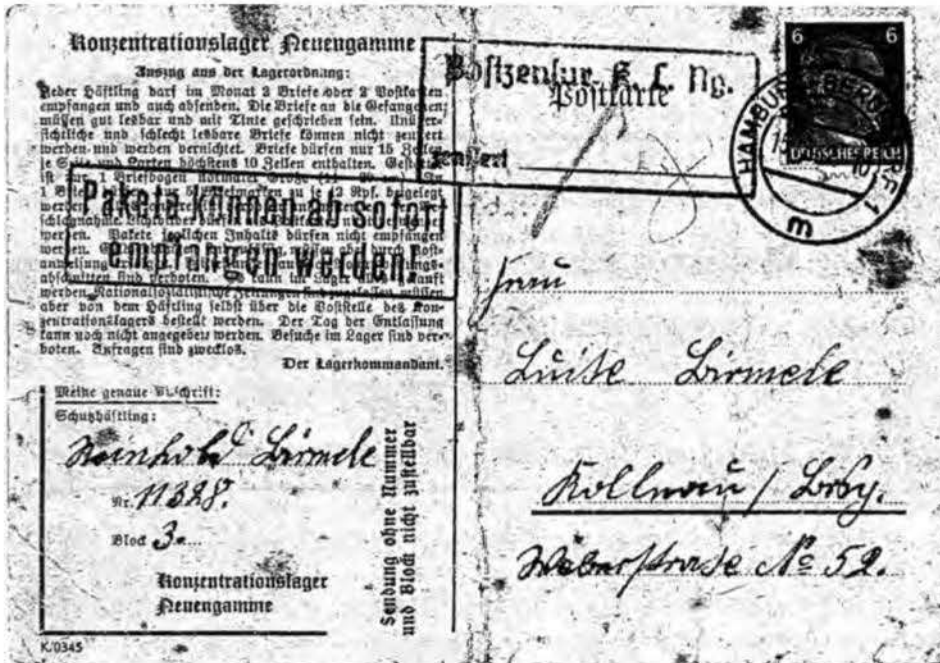 Konzentrationslager Neuengamme
Auszug aus der Lagerordnung:
Jeder Häftling darf im Monat 2 Briefe oder 2 Postkarten
empfangen und auch absenden. Die Briefe an die Gefangenen
müssen gut lesbar und mit Tinte geschrieben sein. Unüber-
sichtliche und schlecht lesbare Briefe können nicht zensiert
werden und werden vernichtet. Briefe dürfen nur 15 Zeilen
je Seite und Karten höchstens 10 Zeilen enthalten. Gestattet
ist nur 1 Briefbogen normaler Größe
1 Brief nur 5 Briefmarken zu je 12 Rpf. beigelegt
werden.
werden. Pakete jeglichen Inhalts dürfen nicht empfangen
werden. müssen aber durch Post-
anweisung
abschnitten sind verboten. Es kann im Lager alles gekauft
werden. Nationalsozialistische Zeitungen sind zugelassen, müssen
aber von dem Häftling selbst über die Poststelle des Kon-
zentrationslagers bestellt werden. Der Tag der Entlassung
kann noch nicht angegeben werden. Besuche im Lager sind ver-
boten. Anfragen sind zwecklos.
Der Lagerkommandant.
Pakete können ab sofort
empfangen werden!
Meine genaue Anschrift:
Schutzhäftling:
Reinhold Birmele
Nr. 11328.
Block 3.
Konzentrationslager
Neuengamme
Sendung ohne Nummer
und Block nicht zustellbar
K/0345
Postzensur K. L. Ng.
Postkarte
zensiert
6 6
DEUTSCHES REICH
HAMBURG-BERGEDORF 1
m
Frau
Luise Birmele
Kollnau / Brsg.
Weberstrase No 52.